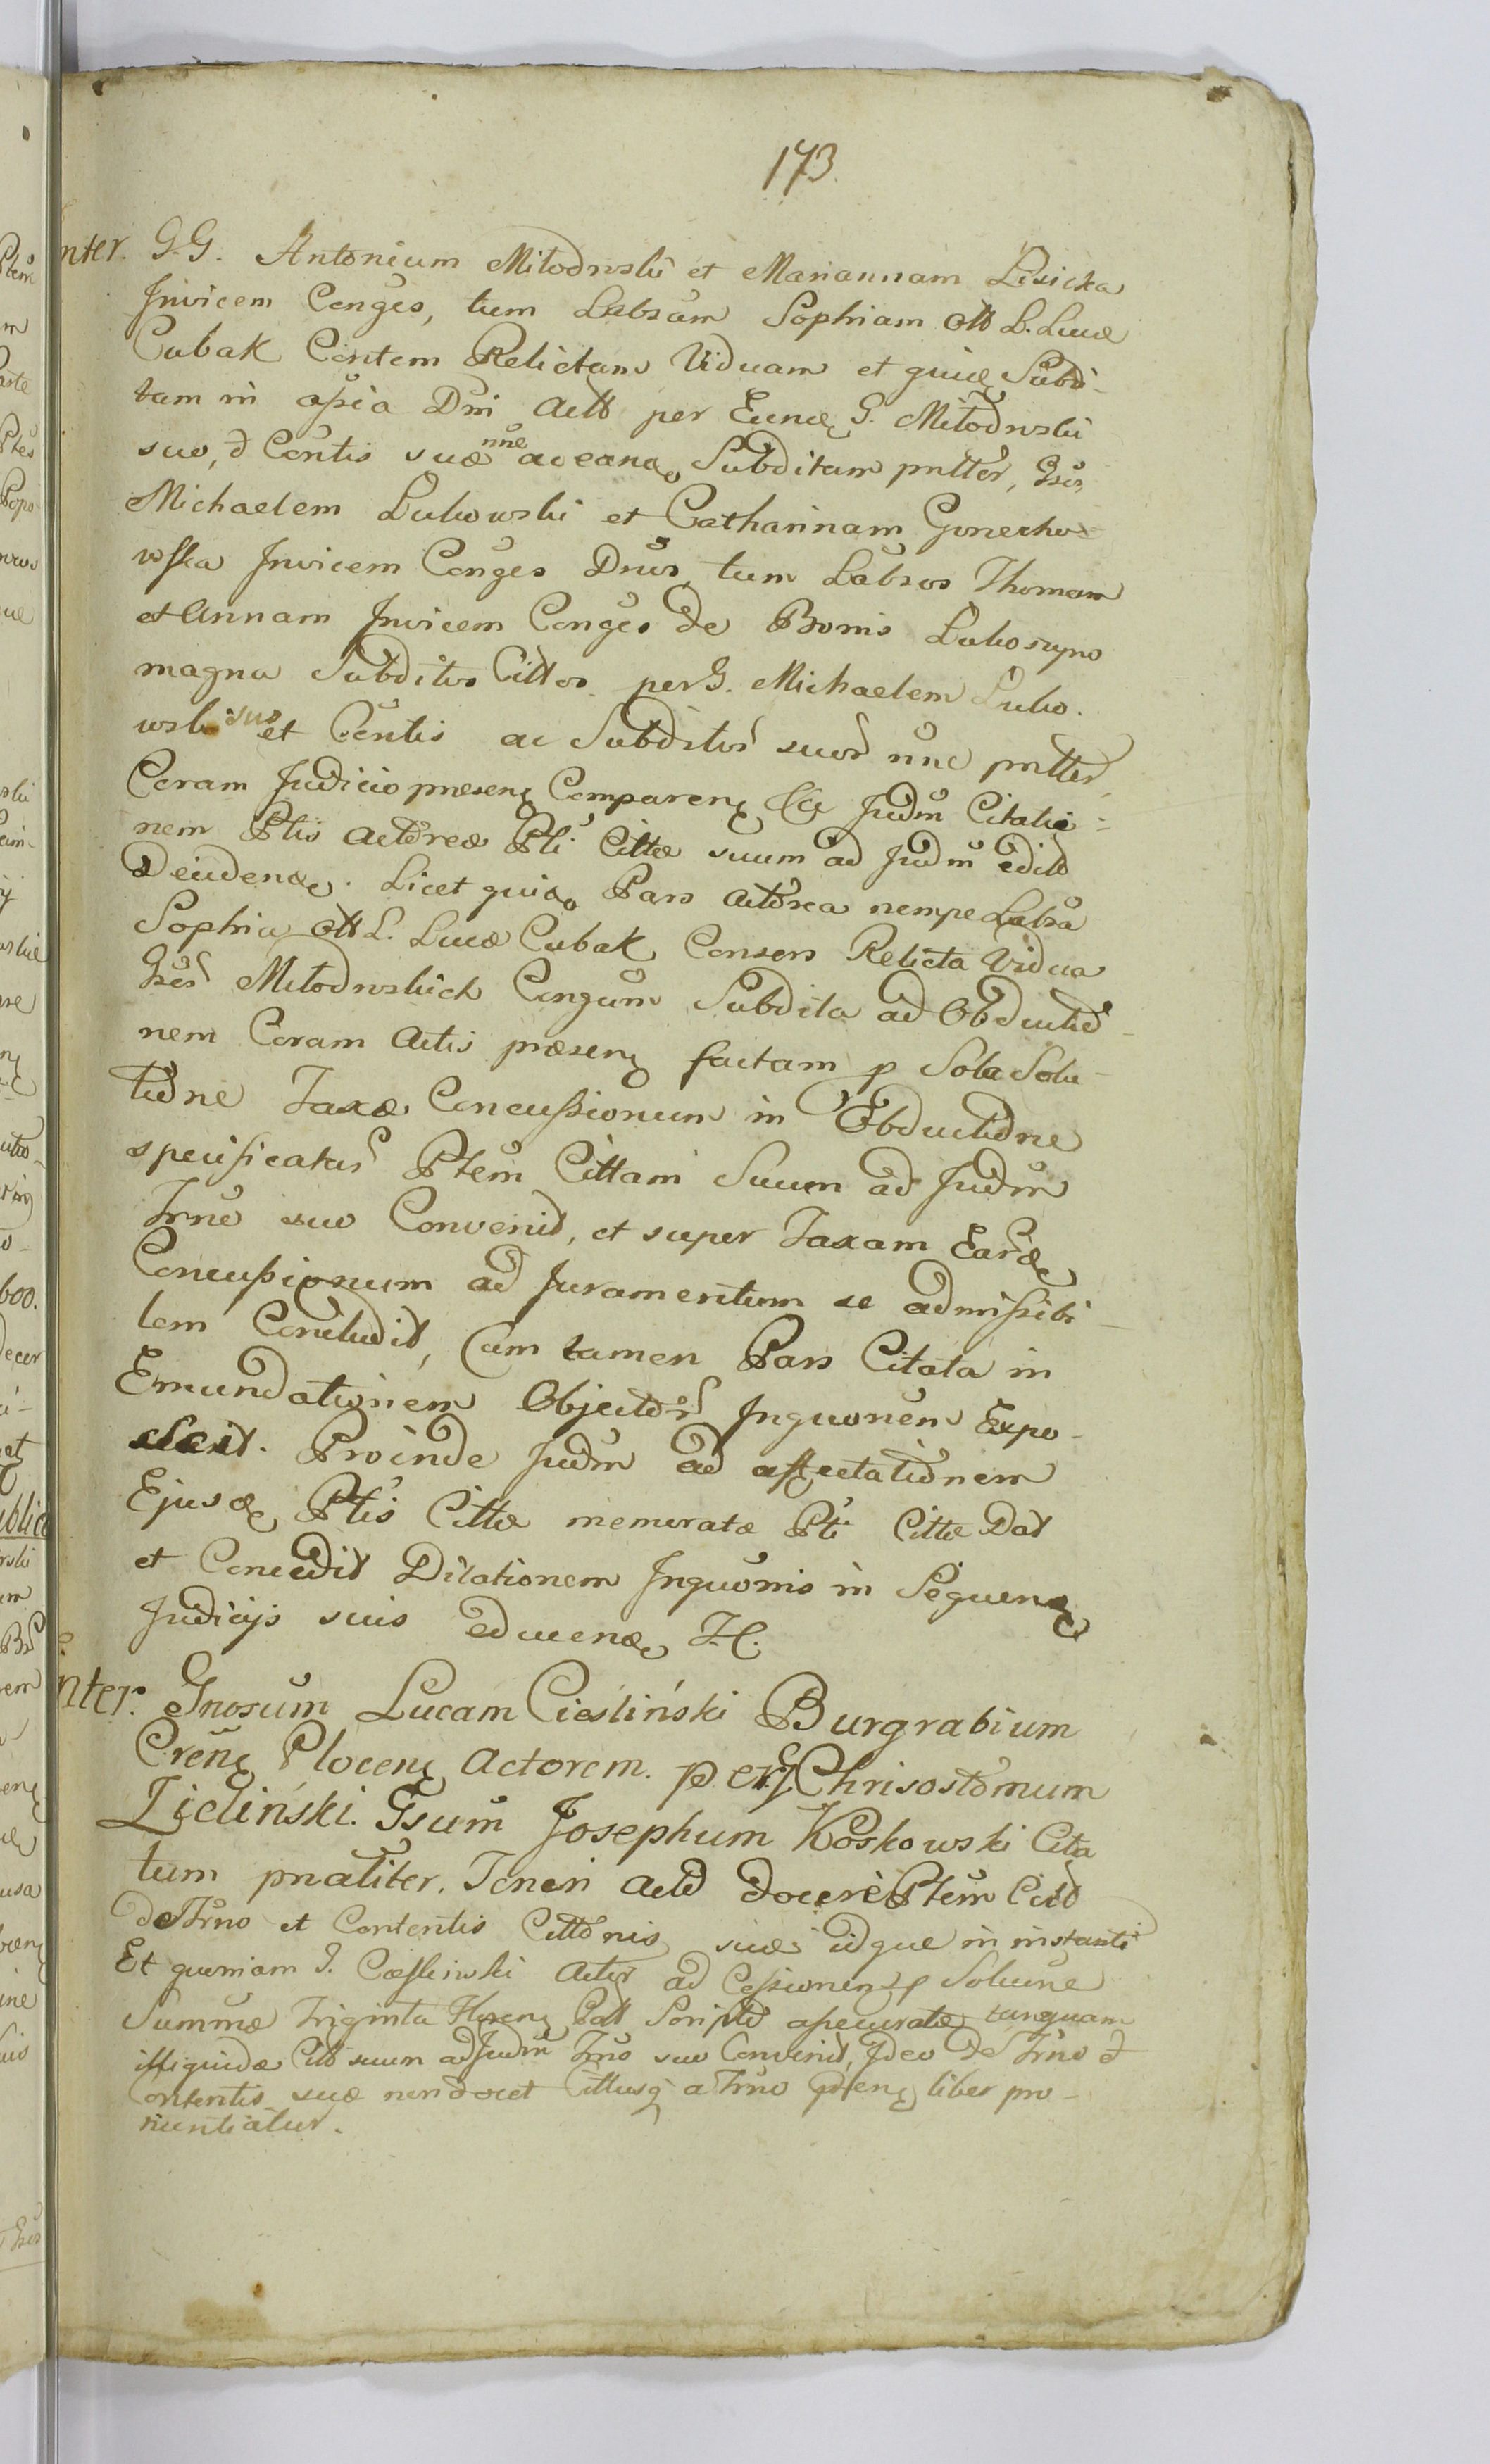 173.
nter. G.G. Antonium Miłodroski et Mariannam Lisicka
Invicem Conges, tum Labsam Sophiam Ott L. Lucæ
Cubak Contem Relictam Viduam et quidę Subdi-
tam in assia Dni Actt per Eundę G. Miłodroski
suo, et Contis suæ nne ac eandę Subditam pntter, Gsos
Michaelem Lukowski et Catharinam Gonecho-
wska Invicem Conges Dnos, tum Labsos Thomam
et Annam Invicem Conges de Bonis Lukoszyno
magna Subditos Cittos per G. Michaelem Luko-
wski suo et Contis ac Subditor suor nne pntter,
Coram Judicio præsenę Comparenę Judm Citatio-
nem Ptis Actoreæ Pti Cittæ suum ad Judm edito
Deudendę. Licet quidę Pars Actorea nempe Labsa
Sophia Ott L. Lucæ Cubak Consors Relicta Vidua
Gsor Miłodroskich Congum Subdita ad Obductio-
nem Coram Actis præsenę factam p Sola Solu-
tione Taxæ Concussionum in Obductione
specificatar Ptem Cittam Suum ad Judm
Trno suo Convenit, et super Taxam Eardę
Concussionum ad Juramentum se admissibi-
lem Concludit, Cum tamen Pars Citata in
Emundationem Objector Inquonem Expo-
scit. Proinde Judm ad affectationem
Ejusdę Ptis Cittæ memoratæ Pti Cittæ Dat
et Concedit Dilationem Inquonis in Sequenę
Judicijs suis educendę H.
nter. Gnosum Lucam Cieśliński Burgrabium
Crenę Plocenę Actorem. p G. Chrisostomum
Zieliński. Gsum Josephum Koskowski Cita
tum pnaliter. Teneri Actd docere Ptem Citd
de Trno et Contentis Cittonis suæ idque in instanti
Et quoniam G. Cieślinski Actor ad Cessionem p Solune
Summæ Triginta Florenę Patt Scripto assecuratæ tanquam
illiquidæ Citt suum ad Judm Trno suo Convenit, Ideo de Trno et
Contentis suæ non docet Cittusq a Trno ptenę liber pro-
nuntiatur.